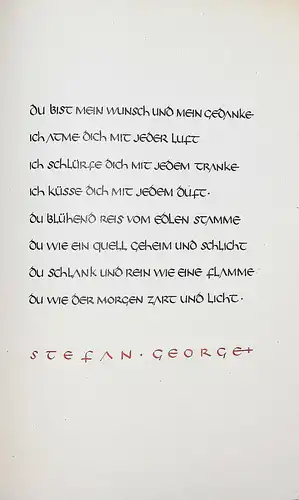 du bist mein wunsch und mein gedanke
ich atme dich mit jeder luft
ich schlürfe dich mit jedem tranke
ich küsse dich mit jedem duft·
du blühend reis vom edlen stamme
du wie ein quell geheim und schlicht
du schlank und rein wie eine flamme
du wie der morgen zart und licht·
STEFAN·GEORGE+